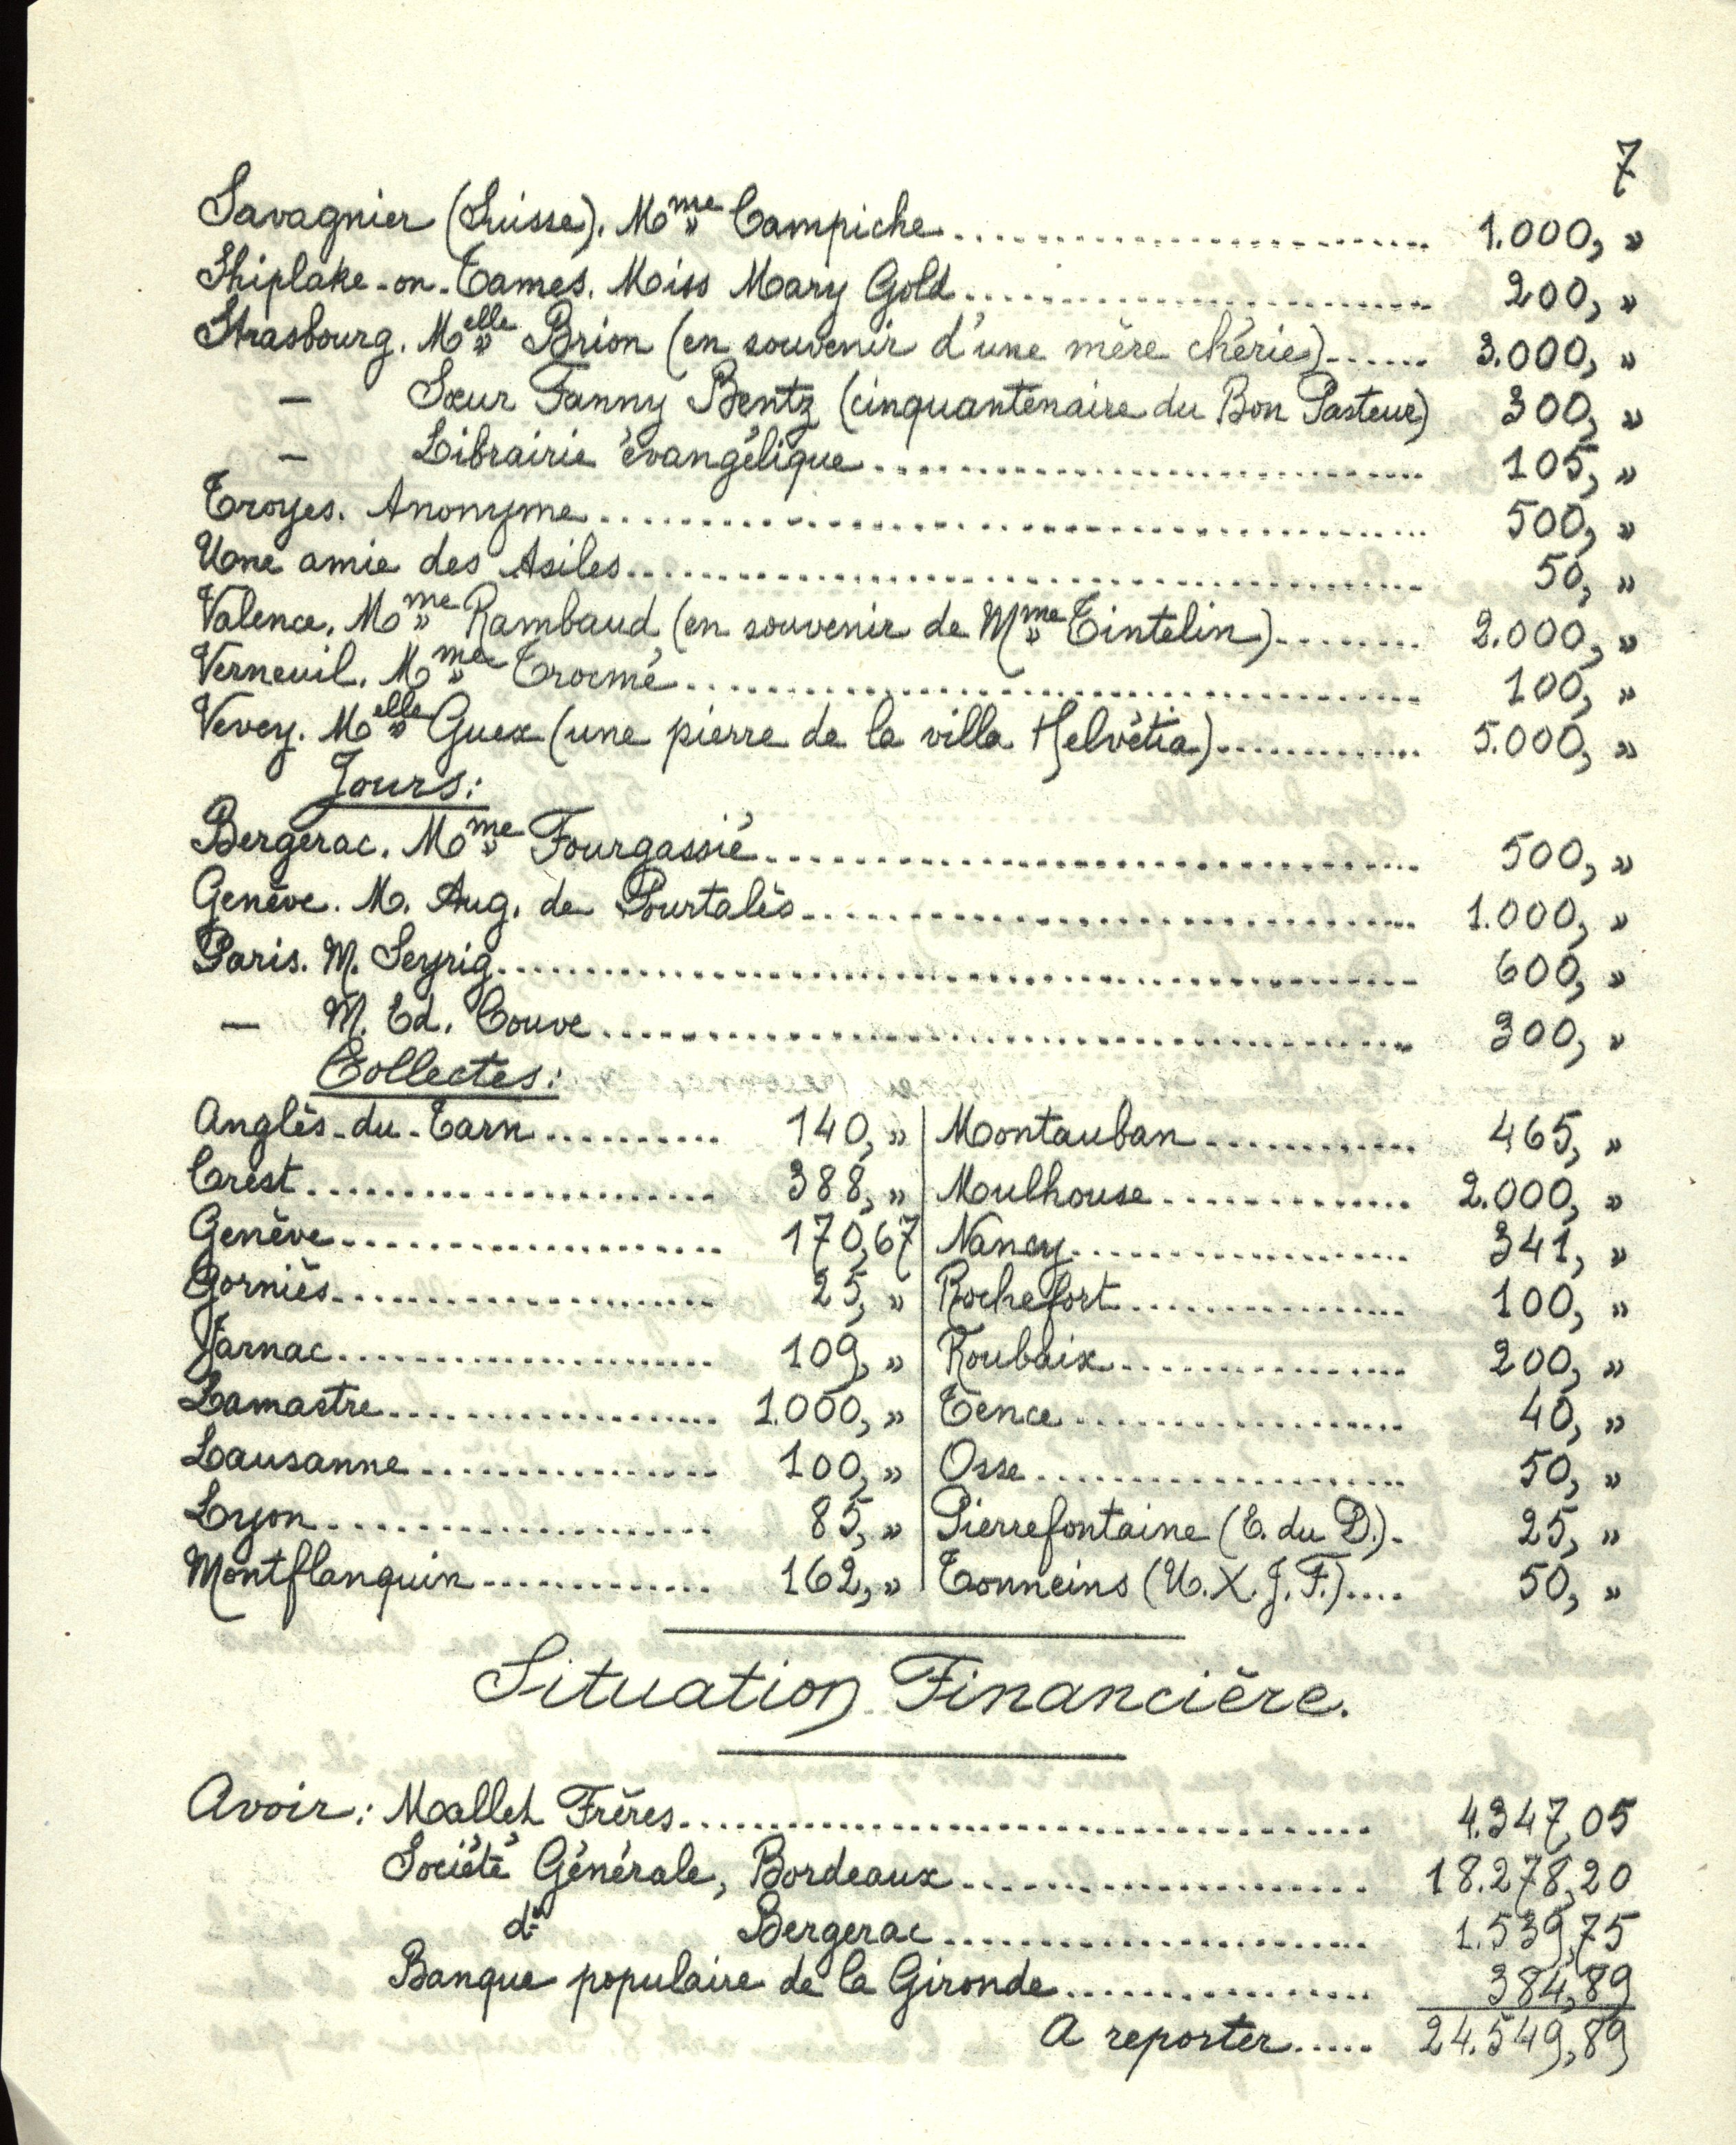 7
Savagnier (Suisse). Mme Campiche.......... 1.000, »
Shiplake-on-Tames. Miss Mary Gold.......... 200, »
Strasbourg. Melle Brion (en souvenir d'une mère chérie)...... 3.000, »
— Sœur Fanny Bentz (cinquantenaire du Bon Pasteur) 300, »
— Librairie évangélique.......... 105, »
Troyes. Anonyme.......... 500, »
Une amie des Asiles.......... 50, »
Valence. Mme Rambaud (en souvenir de Mme Tintelin)........ 2.000, »
Verneuil. Mme Trocmé.......... 100, »
Vevey. Melle Guex (une pierre de la villa Helvétia).......... 5.000, »
Jours:
Bergerac. Mme Fourgassié.......... 500, »
Genève. M. Aug. de Pourtalès.......... 1.000, »
Paris. M. Seyrig.......... 600, »
— M. Ed. Couve.......... 300, »
Collectes:
Anglès-du-Tarn.......... 140, » | Montauban.......... 465, »
Crest.......... 388, » | Mulhouse.......... 2.000, »
Genève.......... 170,67 | Nancy.......... 341, »
Gorniès.......... 25, » | Rochefort.......... 100, »
Jarnac.......... 109, » | Roubaix.......... 200, »
Lamastre.......... 1.000, » | Tence.......... 40, »
Lausanne.......... 100, » | Osse.......... 50, »
Lyon.......... 85, » | Pierrefontaine (E. du D.). 25, »
Montflanquin.......... 162, » | Tonneins (U. X. J. F.).... 50, »
Situation Financière.
Avoir: Mallet Frères.......... 4.347,05
Société Générale, Bordeaux.......... 18.278,20
d° Bergerac.......... 1.539,75
Banque populaire de la Gironde.......... 384,89
A reporter..... 24.549,89